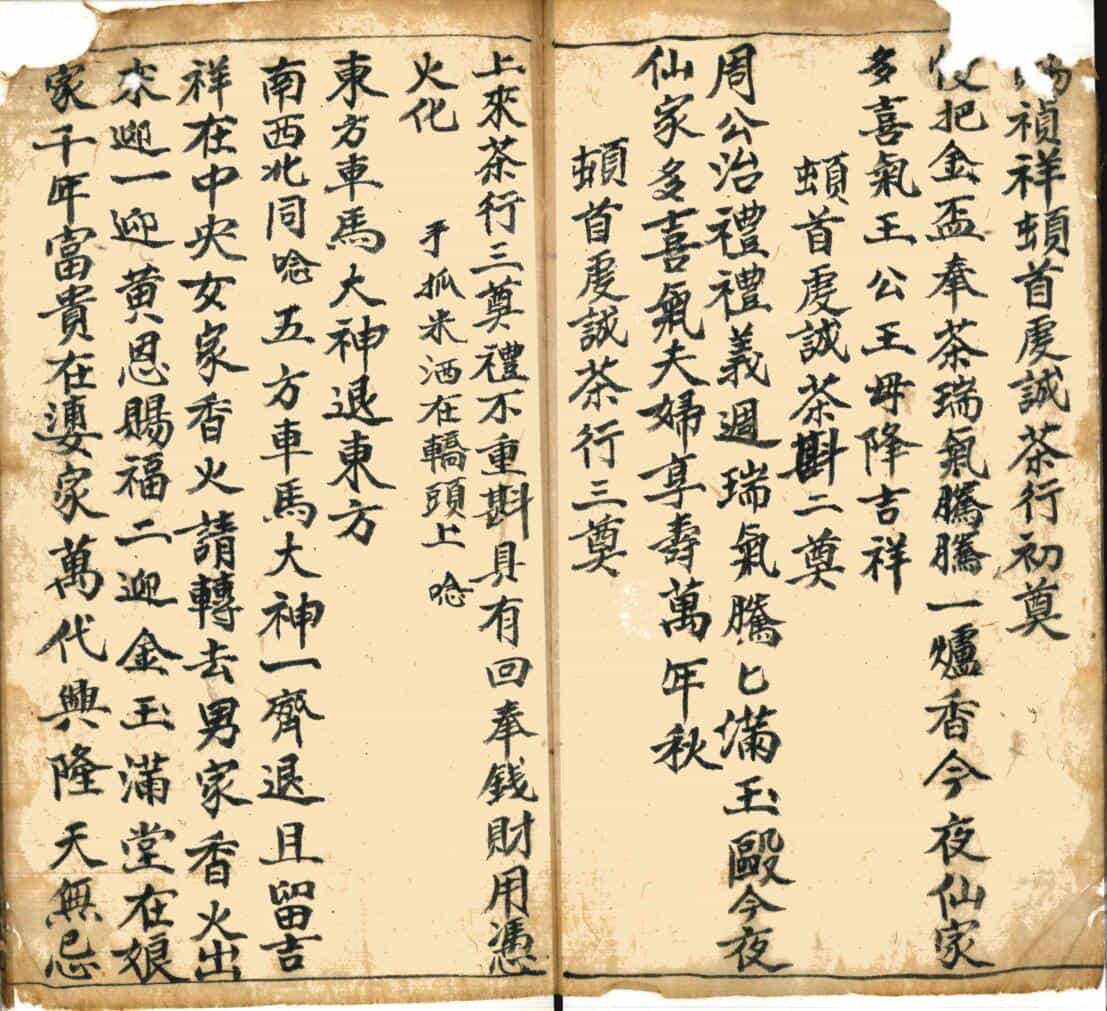 禎祥頓首虔誠茶行初奠
把金盃奉茶瑞氣騰騰一爐香今夜仙家
多喜氣王公王母降吉祥
頓首虔誠茶斟二奠
周公治禮禮義週瑞氣騰匕滿玉毆今夜
仙家多喜氣夫婦享壽萬年秋
頓首虔誠茶行三奠
上來茶行三奠禮不重斟具有回奉錢財用憑
火化
手抓米洒在轎頭上 唸
東方車馬大神退東方
南西北同唸五方車馬大神一齊退且留吉
祥在中央女家香火請轉去男家香火出
來迎一迎黃恩賜福二迎金玉滿堂在娘
家千年富貴在婆家萬代興隆天無忌